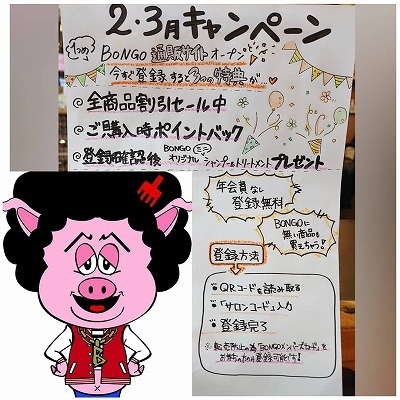 2・3月キャンペーン
1つめ BONGO 通販サイトオープン
今すぐ登録すると3つの特典が
@全商品割引セール中
@ご購入時ポイントバック
@登録確認後 BONGO ミニ オリジナル シャンプー&トリートメントプレゼント
年会費なし
登録無料
BONGOに
無い商品も
買えちゃう!
登録方法
・QRコードを読み取る
・「サロンコード」入力
・登録完了
※転売防止の為「BONGOメンバーズカード」を
お持ちの方のみ登録可能です!